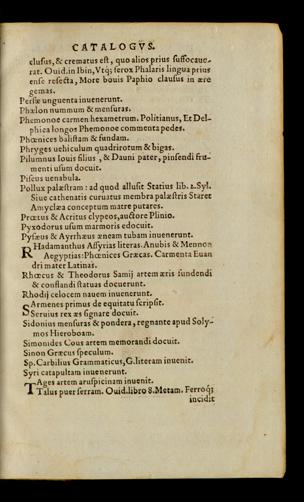 CATALOGVS.
clusus, & crematus est, quo alios prius suffocaue-
rat. Ouid. in Ibin, Vtq; ferox Phalaris lingua prius
ense resecta, More bouis Paphio clausus in ære
gemas.
Persæ unguenta inuenerunt.
Phælon nummum & mensuras.
Phemonoë carmen hexametrum. Politianus, Et Del-
phica longos Phemonoe commenta pedes.
Phœnices balistam & fundam.
Phryges uehiculum quadrirotum & bigas.
Pilumnus Iouis filius, & Dauni pater, pinsendi fru-
menti usum docuit.
Piseus uenabula.
Pollux palæstram: ad quod allusit Statius lib. 2. Syl.
Siue cathenatis curuatus membra palæstris Staret
Amyclæa conceptum matre putares.
Prœtus & Acritus clypeos, auctore Plinio.
Pyxodorus usum marmoris edocuit.
Pysæus & Ayrrhæus æneam tubam inuenerunt.
RHadamanthus Assyrias literas. Anubis & Mennon
Aegyptias: Phœnices Græcas. Carmenta Euan
dri mater Latinas.
Rhœcus & Theodorus Samij artem æris fundendi
& conflandi statuas docuerunt.
Rhodij celocem nauem inuenerunt.
SArmenes primus de equitatu scripsit.
Seruius rex æs signare docuit.
Sidonius mensuras & pondera, regnante apud Soly-
mos Hieroboam.
Simonides Cous artem memorandi docuit.
Sinon Græcus speculum.
Sp. Carbilius Grammaticus, G. literam inuenit.
Syri catapultam inuenerunt.
TAges artem aruspicinam inuenit.
Talus puer serram. Ouid. libro 8. Metam. Ferroq;
incidit